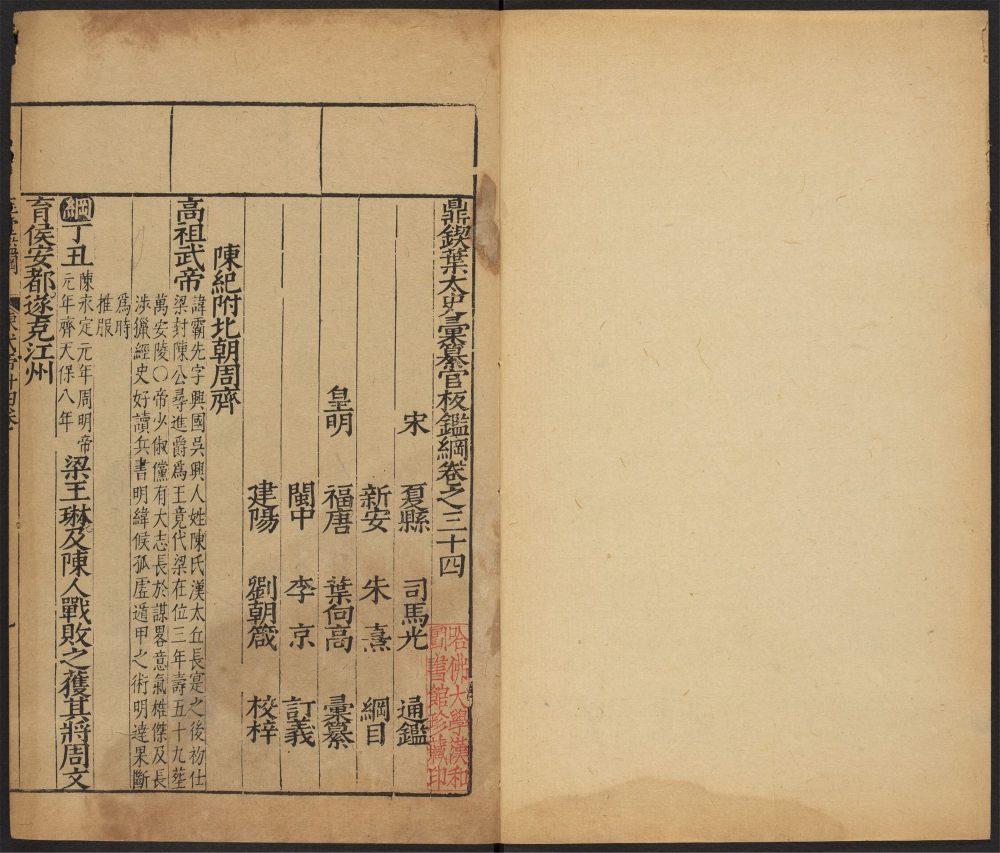 鼎鍥葉太史彙纂官板鑑綱卷之三十四
宋 夏縣 司馬光 通鑑
新安 朱熹 綱目
皇明 福唐 葉向高 彙纂
閩中 李京 訂義
建陽 劉朝箴 校梓
陳紀附北朝周齊
高祖武帝 諱霸先字興國吳興人姓陳氏漢太丘長寔之後初仕
梁封陳公尋進爵爲王竟代梁在位三年壽五十九塟
萬安陵〇帝少俶儻有大志長於謀畧意氣雄傑及長
涉獵經史好讀兵書明緯候孤虛遁甲之術明達果斷
爲時
推服
綱丁丑 陳永定元年周明帝
元年齊天保八年
梁王琳及陳人戰敗之獲其將周文
育侯安都遂克江州
哈佛大學漢和
圖書館珍藏印